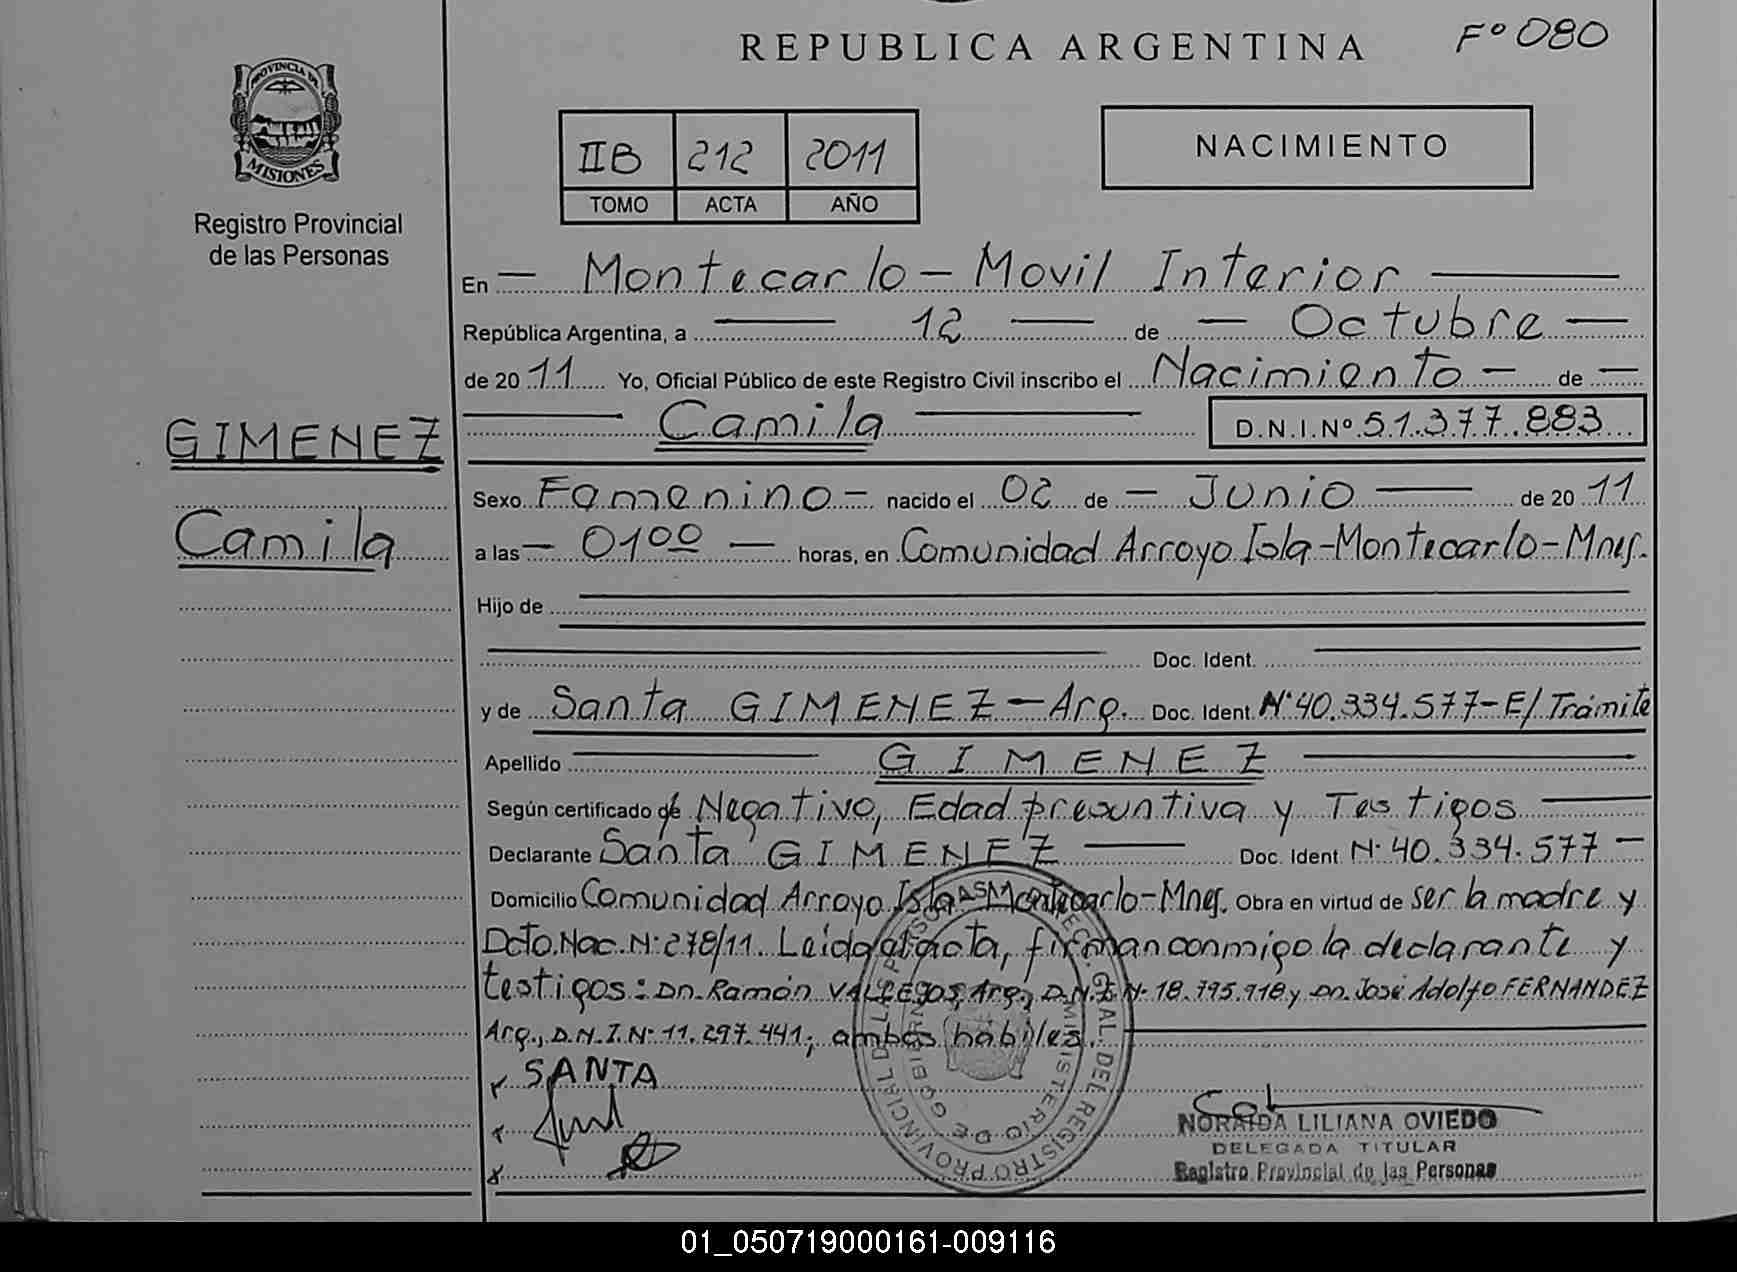 REPUBLICA ARGENTINA
Fº 080
PROVINCIA DE
MISIONES
Registro Provincial
de las Personas
IIB 212 2011
TOMO ACTA AÑO
NACIMIENTO
En — Montecarlo - Movil Interior —
República Argentina, a — 12 — de — Octubre —
de 20 11 Yo, Oficial Público de este Registro Civil inscribo el Nacimiento — de —
— Camila — D.N.I.Nº 51.377.883
GIMENEZ
Camila
Sexo Femenino — nacido el 02 de — Junio — de 20 11
a las — 01⁰⁰ — horas, en Comunidad Arroyo Isla - Montecarlo - Mnes.
Hijo de
Doc. Ident.
y de Santa GIMENEZ — Arg. Doc. Ident. Nº 40.334.577 - E/Trámite
Apellido — GIMENEZ —
Según certificado de Negativo, Edad presuntiva y Testigos —
Declarante Santa GIMENEZ — Doc. Ident N· 40.334.577 —
Domicilio Comunidad Arroyo Isla - Montecarlo - Mnes. Obra en virtud de ser la madre y
Dcto. Nac. N: 278/11. Leída el acta, firman conmigo la declarante y
testigos: Dn. Ramón VALLEJOS, Arg., D.N.I. N· 18.795.918 y Dn. José Adolfo FERNANDEZ
Arg., D.N.I. N· 11.297.441; ambos hábiles.
SANTA
NORAIDA LILIANA OVIEDO
DELEGADA TITULAR
Registro Provincial de las Personas
01_050719000161-009116